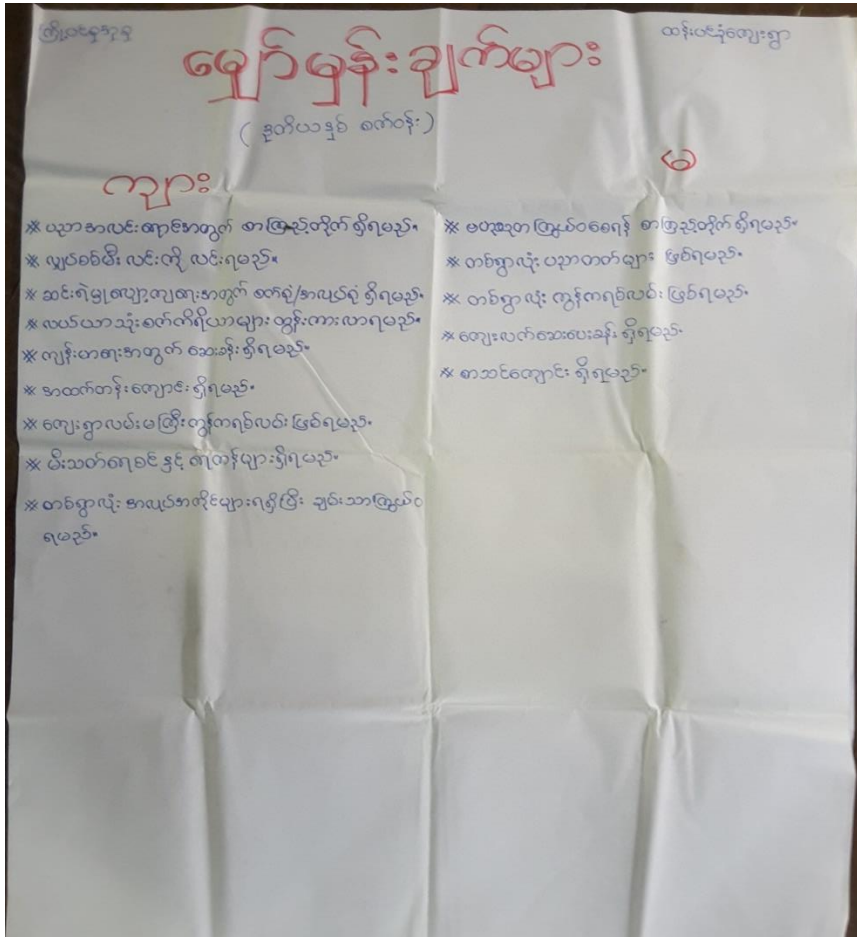 ထန်းပင်ခုံကျေးရွာ
မျှော်မှန်းချက်များ
(ဒုတိယနှစ် စက်ဝန်း)
ကျား
※ ပညာအလင်းရောင်အတွက် စာကြည့်တိုက် ရှိရမည်။
※ လျှပ်စစ်မီး လင်းကို လင်းရမည်။
※ ဆင်းရဲမှုလျော့ကျရေးအတွက် စက်ရုံ/အလုပ်ရုံ ရှိရမည်။
※ လယ်ယာသုံးစက်ကိရိယာများ ထွန်းကားလာရမည်။
※ ကျန်းမာရေးအတွက် ဆေးခန်းရှိရမည်။
※ အထက်တန်းကျောင်း ရှိရမည်။
※ ကျေးရွာလမ်းမကြီး ကွန်ကရစ်လမ်း ဖြစ်ရမည်။
※ မီးသတ်ရေစင် နှင့် ရေကန်များရှိရမည်။
※ တစ်ရွာလုံး အလုပ်အကိုင်များရရှိပြီး ချမ်းသာကြွယ်ဝ
ရမည်။
မ
※ ဗဟုသုတကြွယ်ဝစေရန် စာကြည့်တိုက် ရှိရမည်။
※ တစ်ရွာလုံး ပညာတတ်များ ဖြစ်ရမည်။
※ တစ်ရွာလုံး ကွန်ကရစ်လမ်း ဖြစ်ရမည်။
※ ကျေးလက်ဆေးပေးခန်း ရှိရမည်။
※ စာသင်ကျောင်း ရှိရမည်။